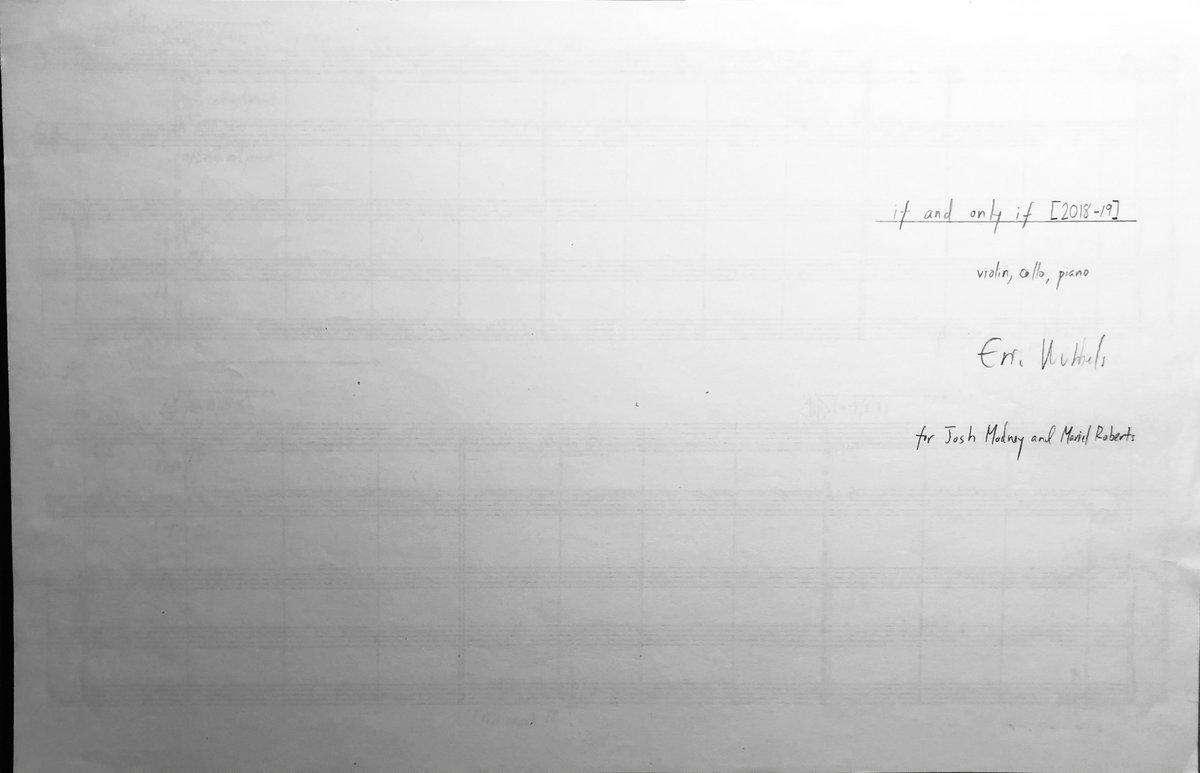 if and only if [2018-19]
violin, cello, piano
Eric Wubbels
for Josh Modney and Mariel Roberts